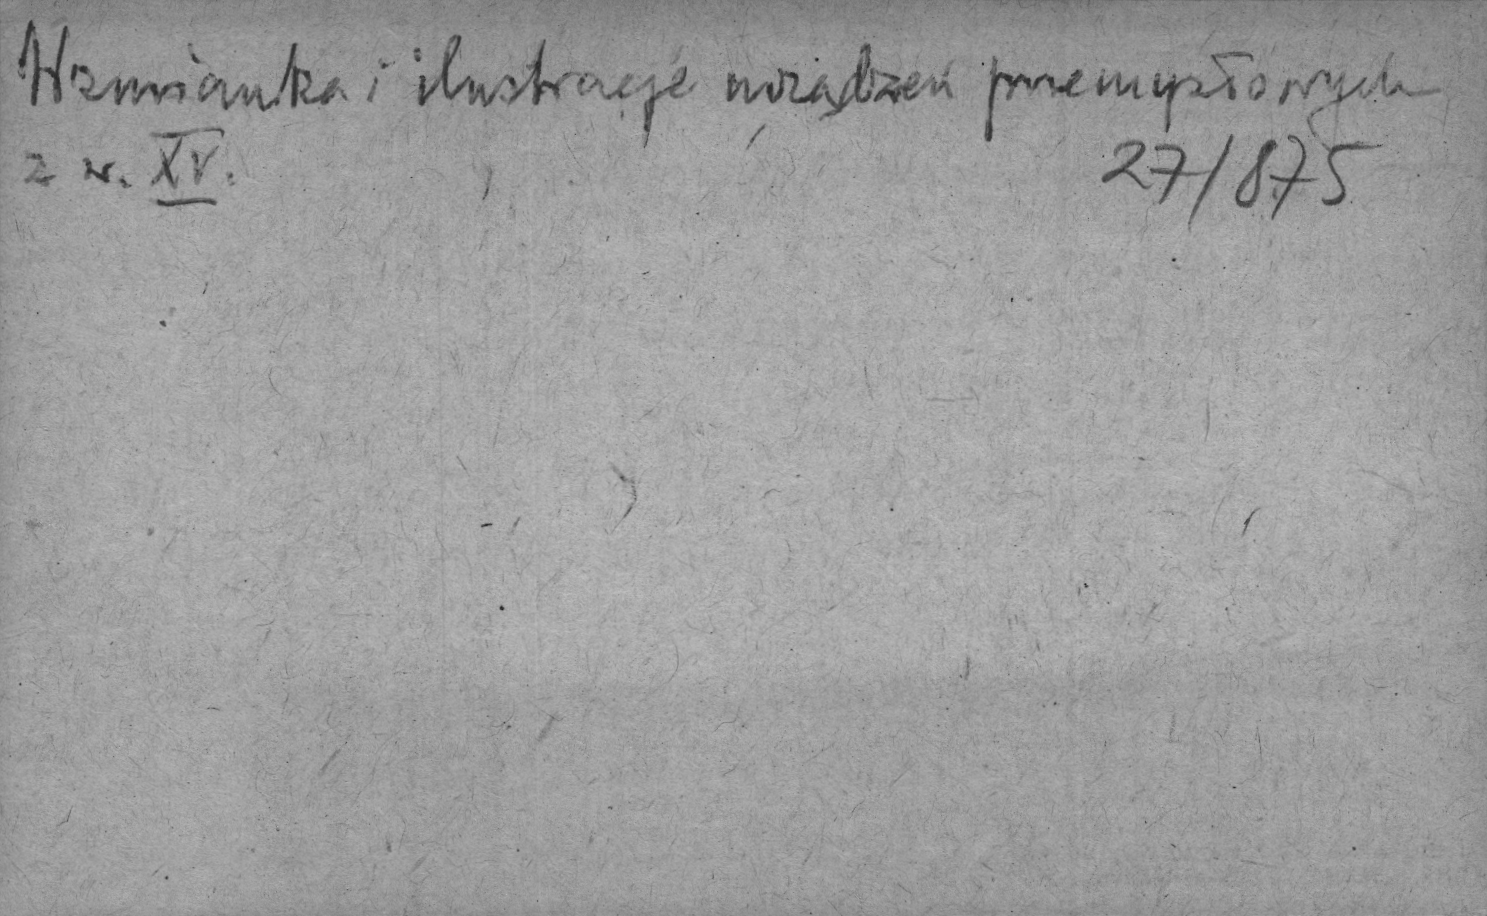 Wzmianka i ilustracje urządzeń przemysłowych
z w. XV.
27/875